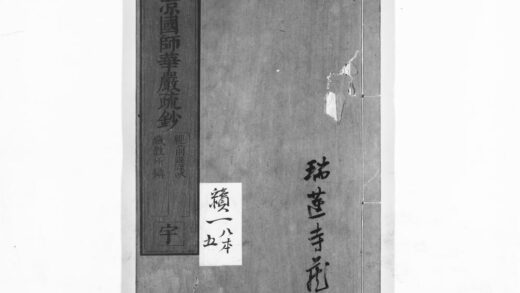 涼國師華嚴疏鈔
宇
續一八本
五
瑞蓮寺藏